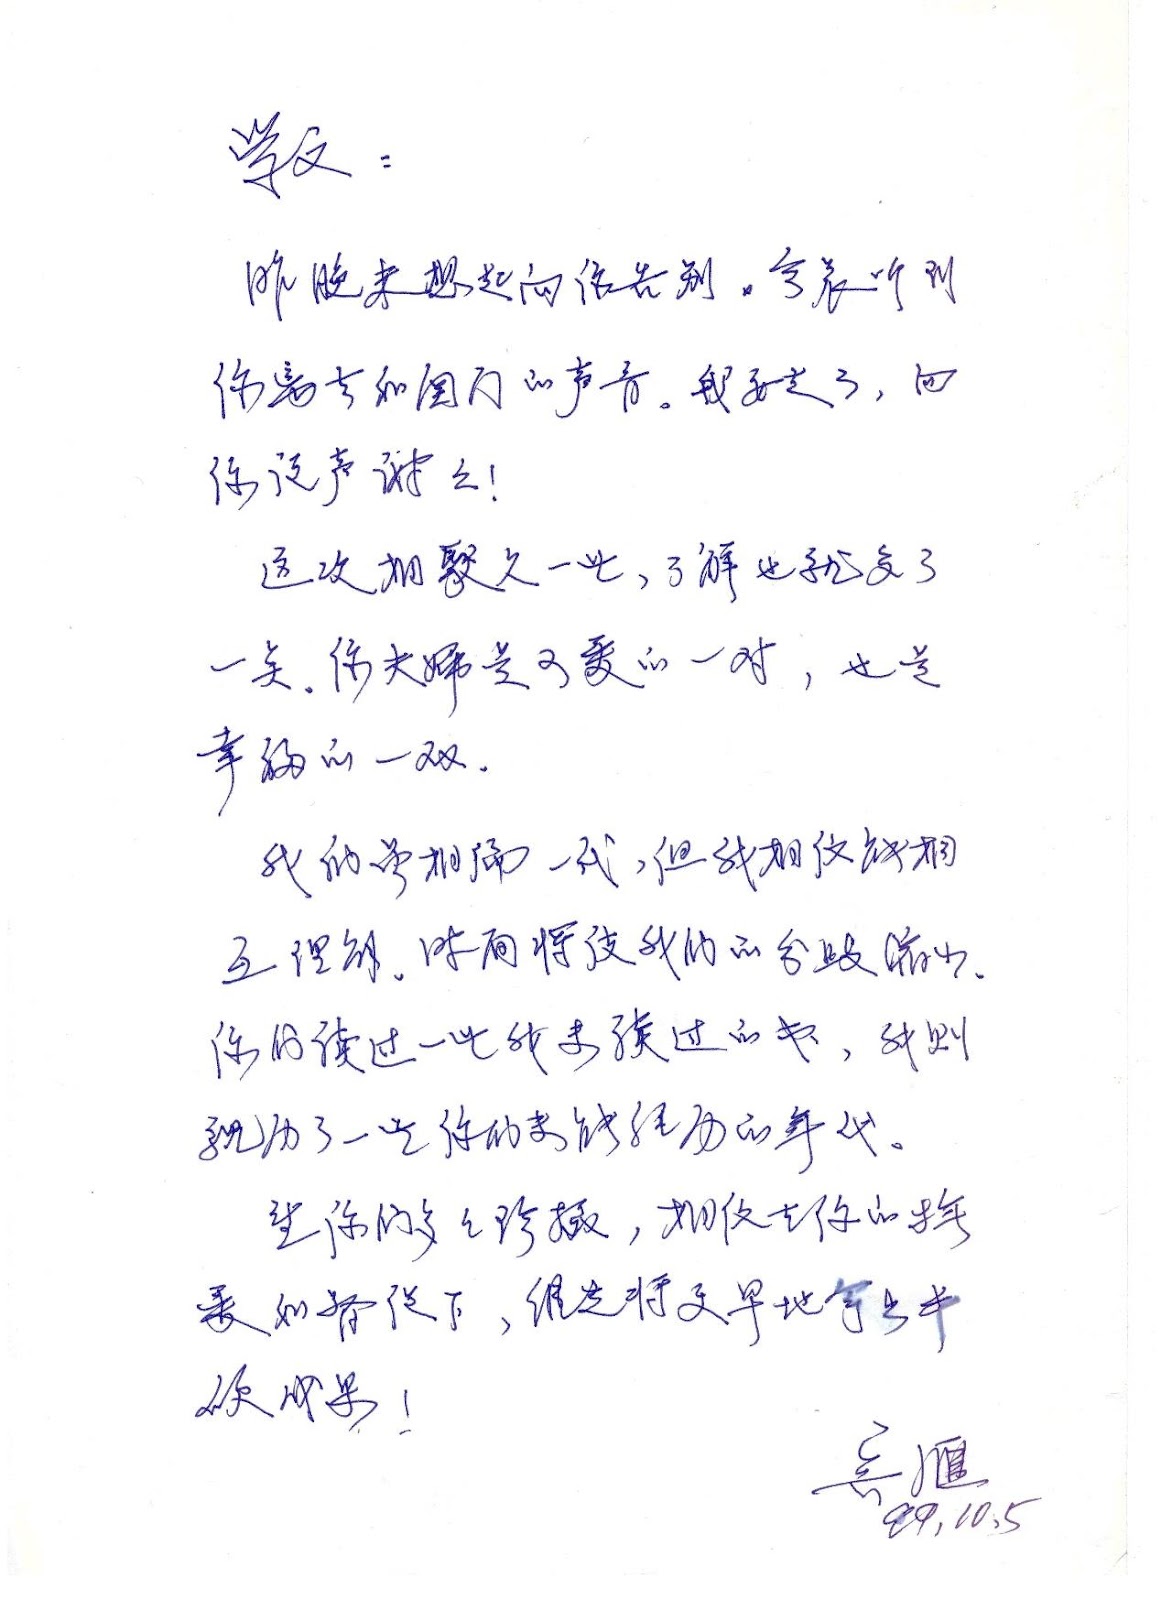 学文：
昨晚未想起向你告别。今晨听到
你离去和关门的声音。我要走了，向
你说声谢谢！
这次相聚久一些，了解也就多了
一点。你夫妇是可爱的一对，也是
幸福的一双。
我们虽相隔一代，但我相信能相
互理解。时间将使我们的分歧缩小。
你们读过一些我未读过的书，我则
亲历了一些你们未能经历的年代。
望你们多多珍摄，相信在你的挚
爱和督促下，维志将更早地拿出丰
硕成果！
99.10.5